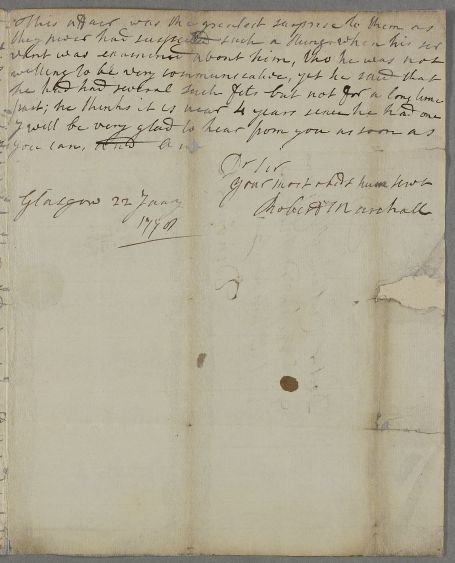 This affair was the greatest surprise to them as
they never had suspected such a thing when his ser
vant was examined about him, tho he was not
willing to be very communicative, yet he said that
he had had several such fits but not for a long time
past; he thinks it is near 4 years since he had one
I will be very glad to hear from you as soon as
you can, I am
Dr Sir
Your most obedt hum servt
Robert Marshall
Glasgow 22 Janry